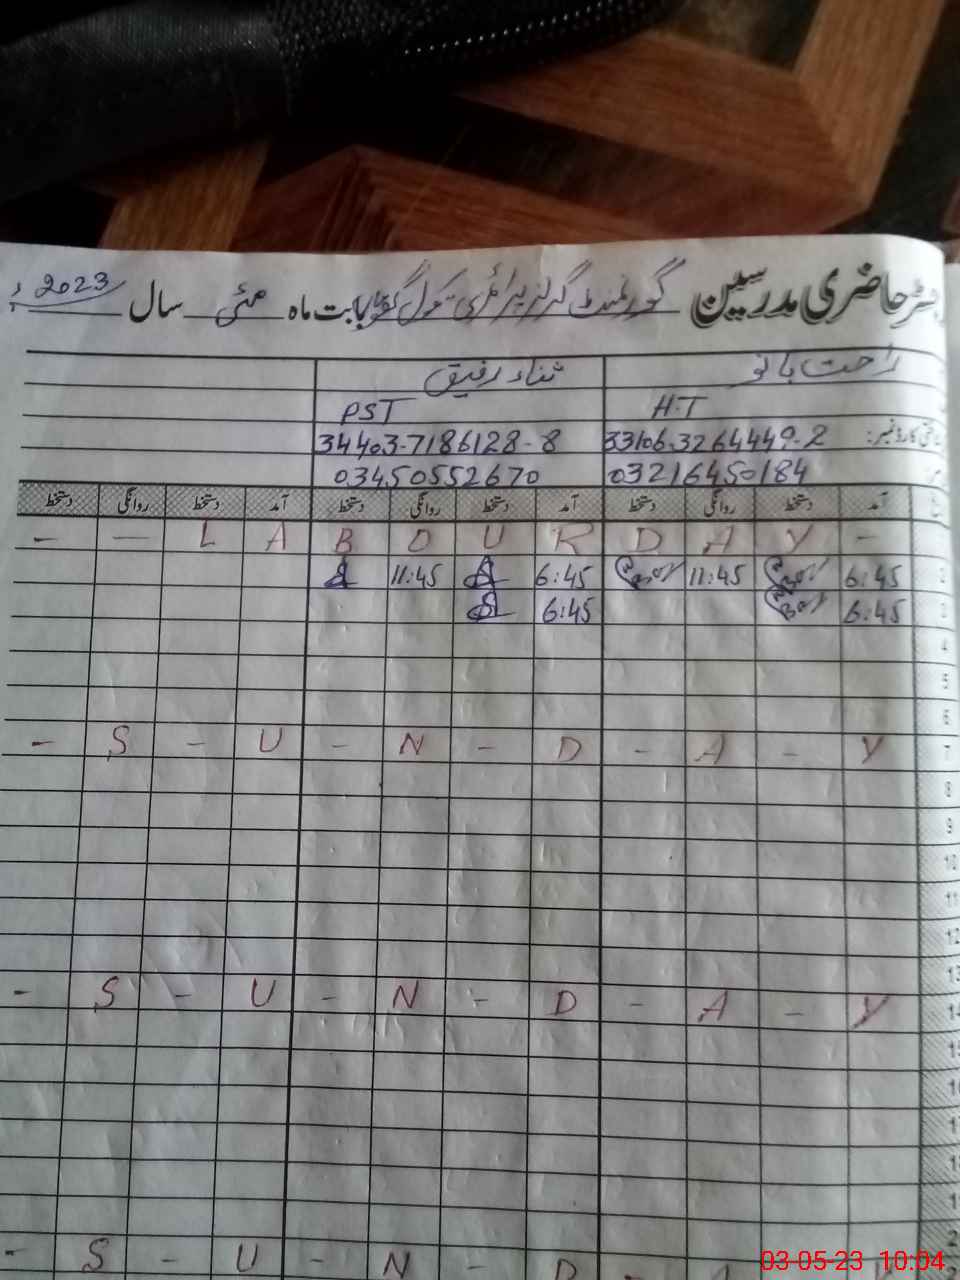 رجسٹر حاضری مدرسین گورنمنٹ گرلز پرائمری سکول بابت ماہ مئی سال 2023ء
راحت بانو ثناء رفیق
H.T PST
شناختی کارڈ نمبر: 33106-3264449-2 34403-7186128-8
03216450184 03450552670
آمد دستخط روانگی دستخط آمد دستخط روانگی دستخط آمد دستخط روانگی دستخط
- - L A B O U R D A Y -
2 6:45 11:45 6:45 11:45
3 6:45 6:45
4
5
6
- S - U - N - D - A - Y 7
8
9
10
11
12
13
- S - U - N - D - A - Y 14
15
- S - U - N - D - A
03-05-23 10:04